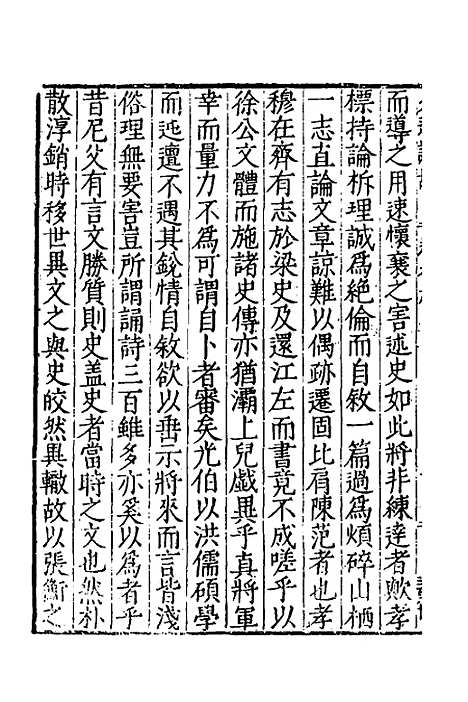 而導之用速懷襄之害述史如此將非練達者歟孝
標持論析理誠爲絶倫而自敘一篇過爲煩碎山栖
一志直論文章諒難以偶跡遷固比肩陳范者也孝
穆在齊有志於梁史及還江左而書竟不成嗟乎以
徐公文體而施諸史傳亦猶灞上兒戲異乎真將軍
幸而量力不爲可謂自卜者審矣光伯以洪儒碩學
而迍邅不遇其鋭情自敘欲以垂示將來而言皆淺
俗理無要害豈所謂誦詩三百雖多亦奚以爲者乎
昔尼父有言文勝質則史盖史者當時之文也然朴
散淳銷時移世異文之與史皎然異轍故以張衡之